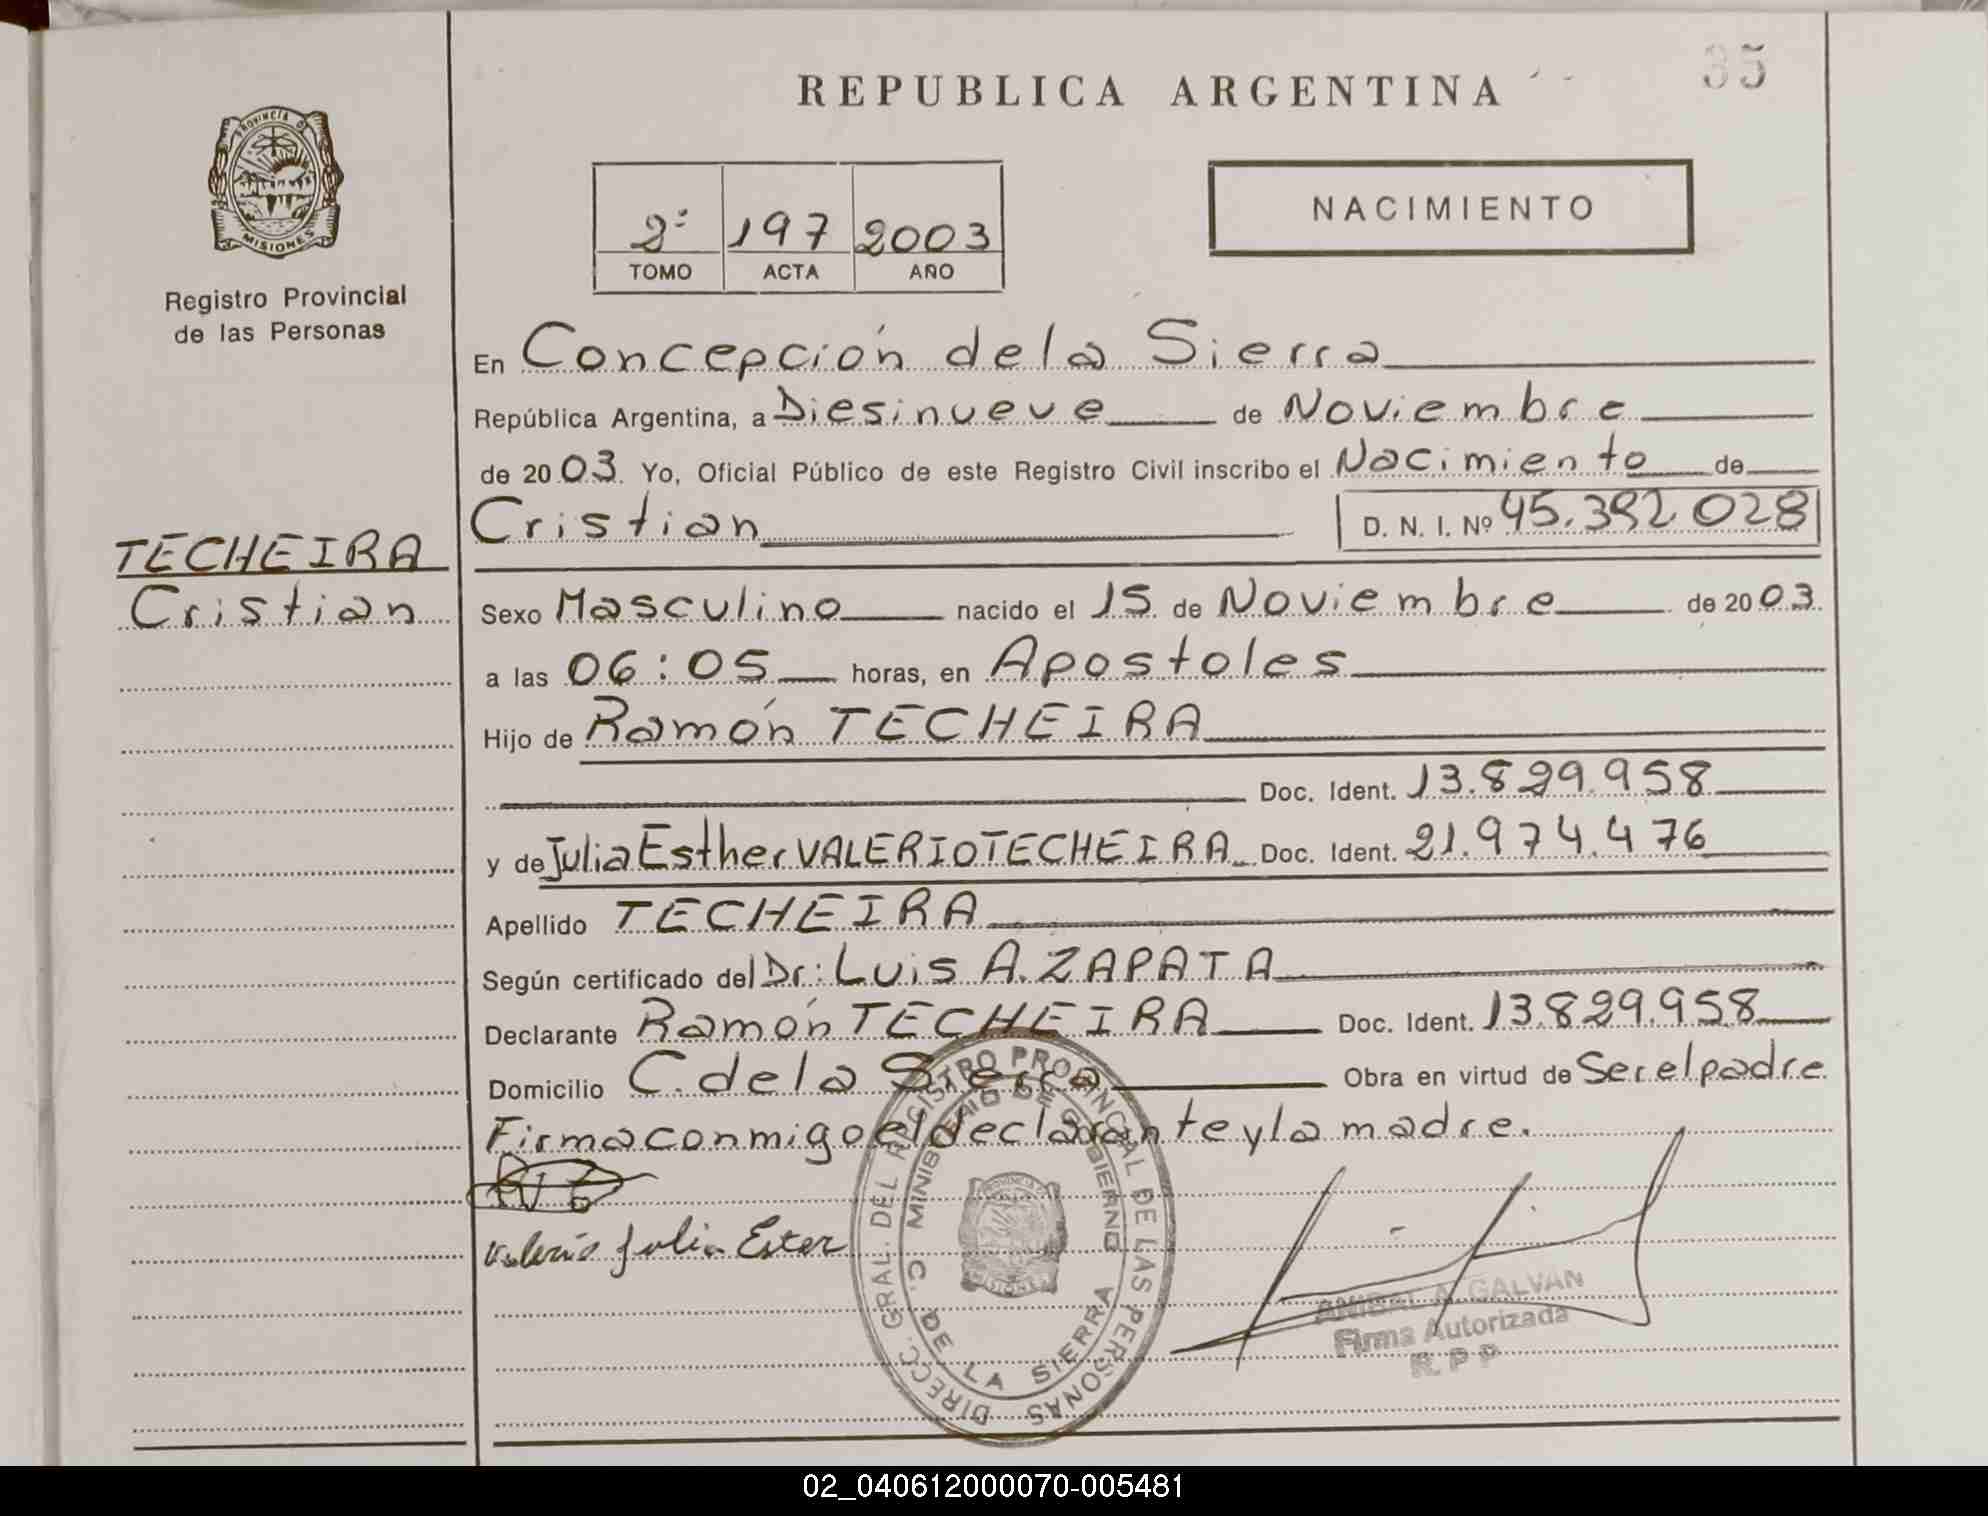 35
REPUBLICA ARGENTINA
PROVINCIA DE
MISIONES
Registro Provincial
de las Personas
2º 197 2003
TOMO ACTA AÑO
NACIMIENTO
En Concepción de la Sierra
República Argentina, a Diesinueve de Noviembre
de 2003. Yo, Oficial Público de este Registro Civil inscribo el Nacimiento de
Cristian D. N. I. Nº 45.392.028
TECHEIRA
Cristian
Sexo Masculino nacido el 15 de Noviembre de 2003
a las 06:05 horas, en Apostoles
Hijo de Ramón TECHEIRA
Doc. Ident. 13.829.958
y de Julia Esther VALERIO TECHEIRA Doc. Ident. 21.974.476
Apellido TECHEIRA
Según certificado del Dr: Luis A. ZAPATA
Declarante Ramón TECHEIRA Doc. Ident. 13.829.958
Domicilio C. de la Sierra Obra en virtud de Ser el padre
Firma conmigo el declarante y la madre.
Valerio Julia Ester
DIRECC. GRAL. DEL REGISTRO PROVINCIAL DE LAS PERSONAS
MINISTERIO DE GOBIERNO
C. DE LA SIERRA
PROVINCIA DE
MISIONES
ANIBAL A. GALVAN
Firma Autorizada
R. P P
02_040612000070-005481